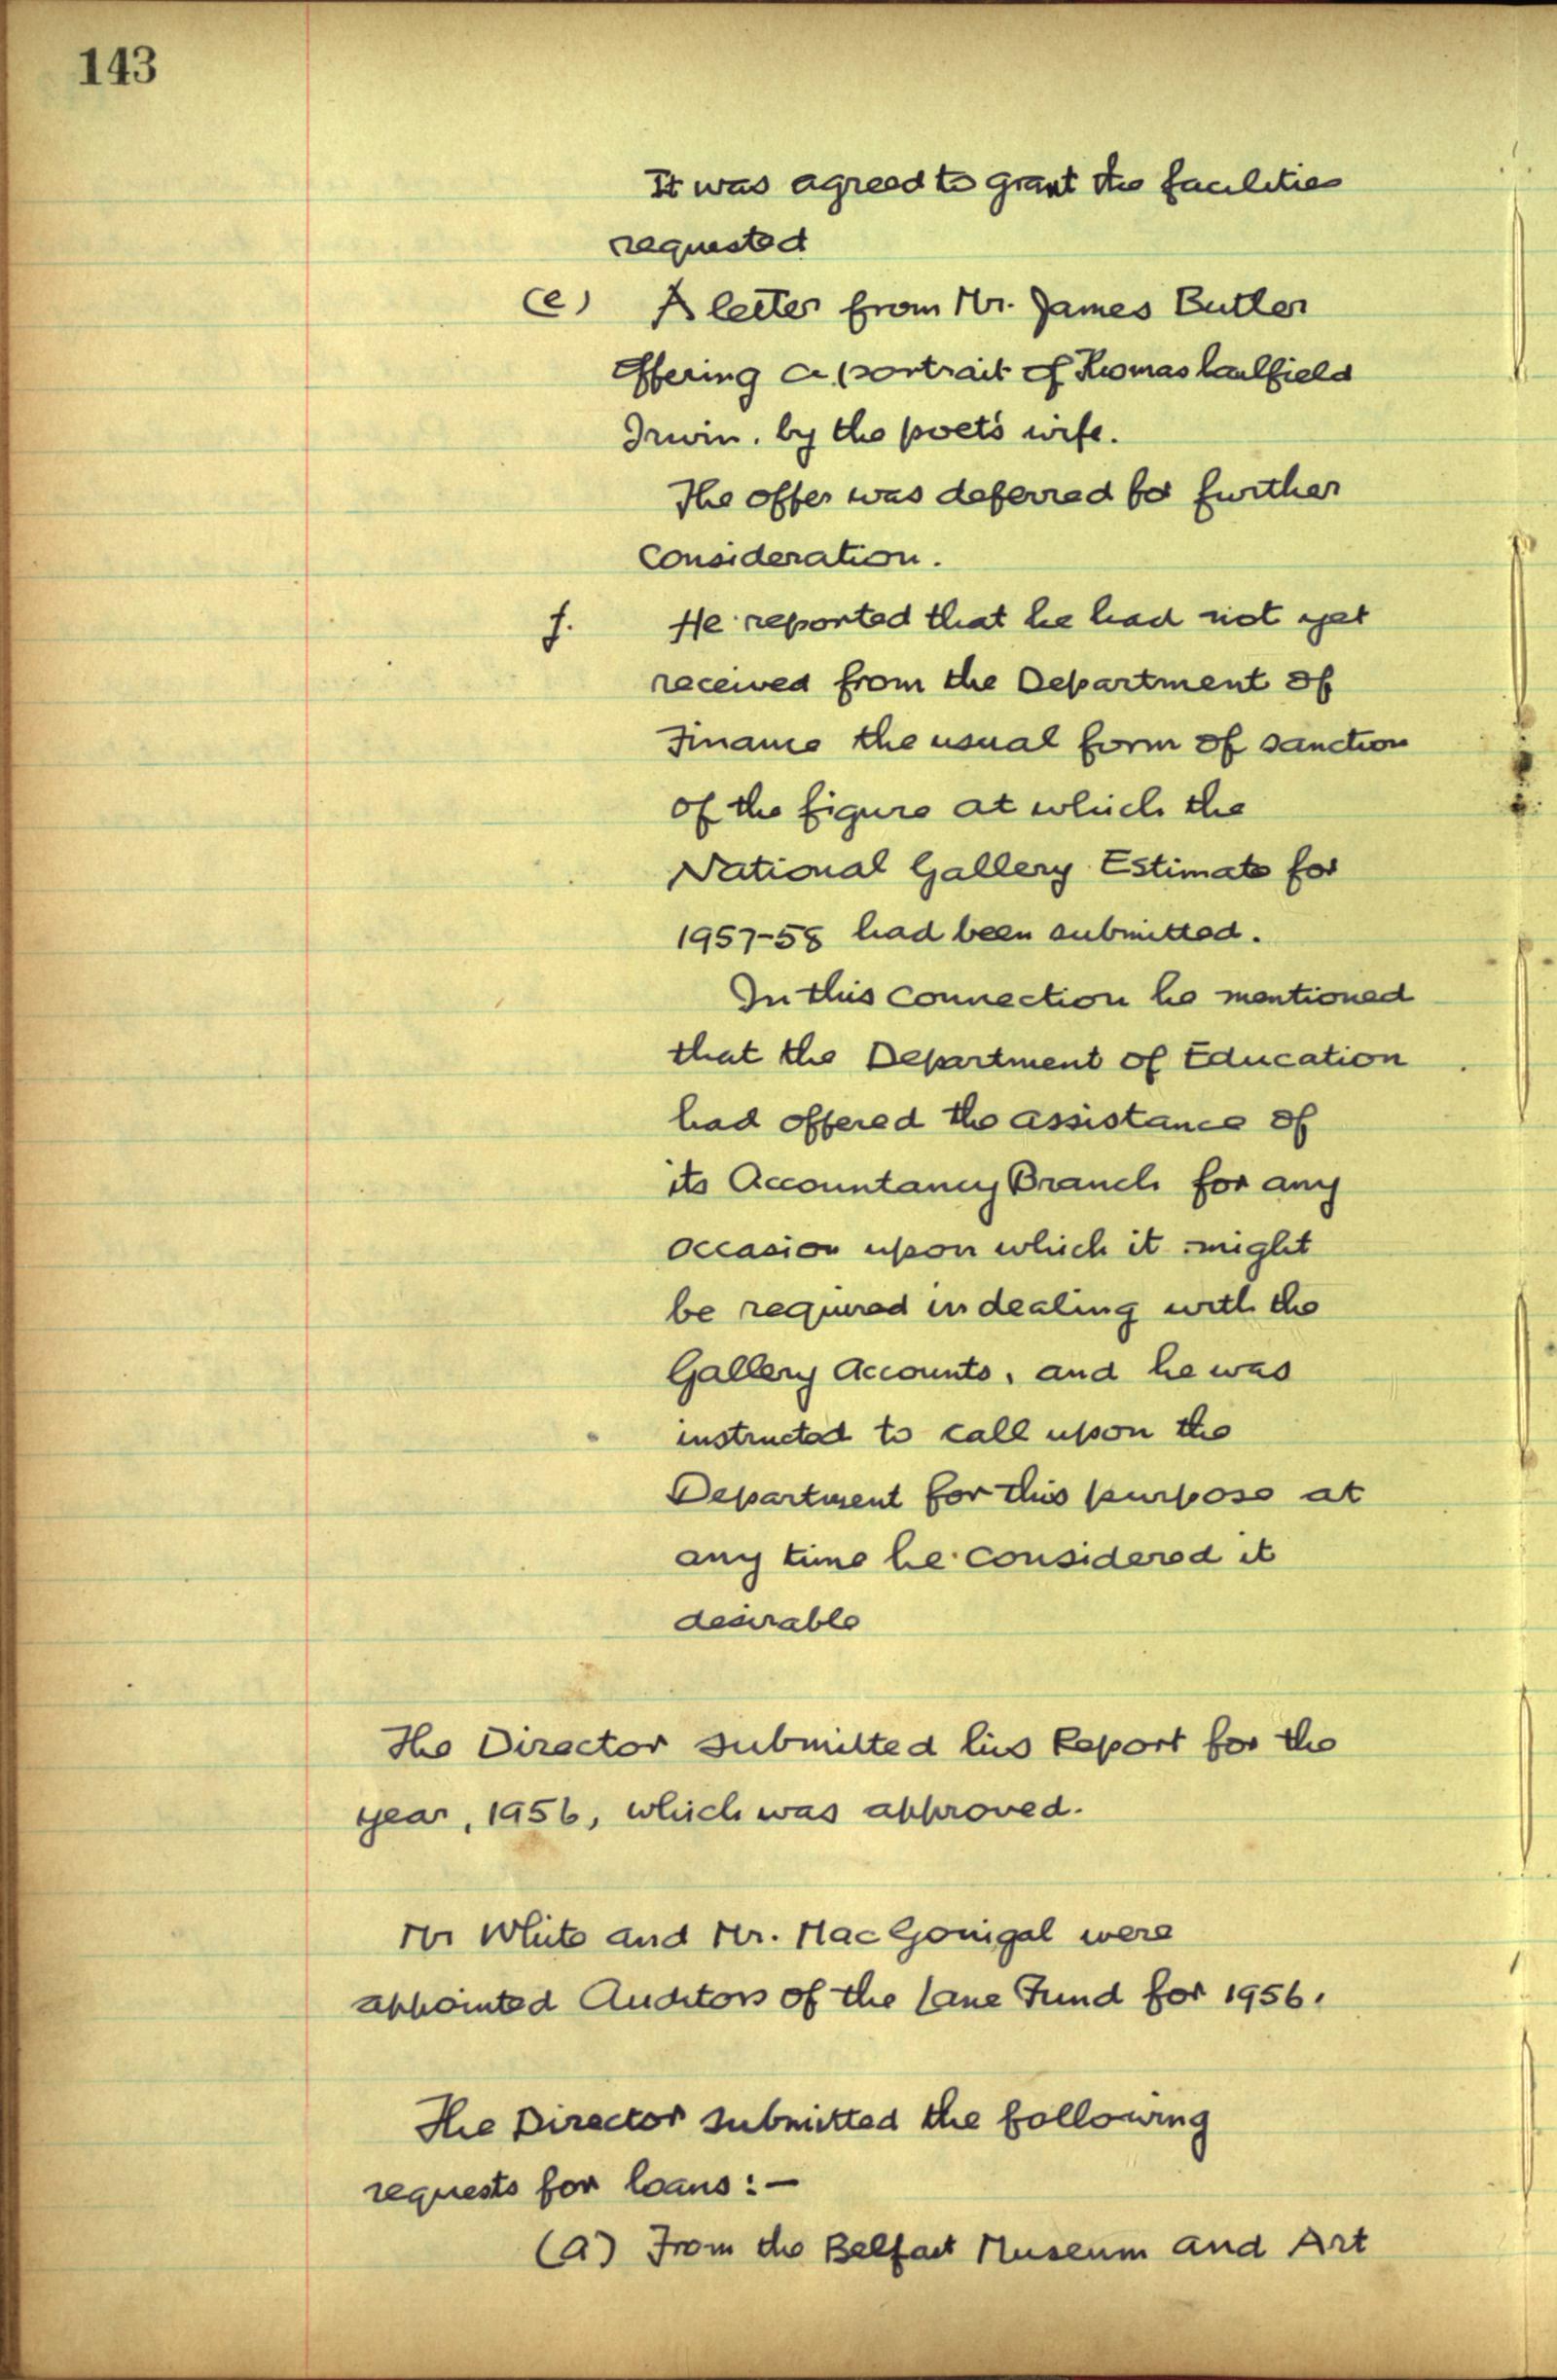 143
It was agreed to grant the facilities
requested
(e) A letter from Mr. James Butler
offering a portrait of Thomas Caulfield
Irwin, by the poet's wife.
The offer was deferred for further
consideration.
f. He reported that he had not yet
received from the Department of
Finance the usual form of sanction
of the figure at which the
National Gallery Estimate for
1957-58 had been submitted.
In this connection he mentioned
that the Department of Education
had offered the assistance of
its Accountancy Branch for any
occasion upon which it might
be required in dealing with the
Gallery Accounts, and he was
instructed to call upon the
Department for this purpose at
any time he considered it
desirable
The Director submitted his Report for the
year, 1956, which was approved.
Mr White and Mr. MacGonigal were
appointed Auditors of the Lane Fund for 1956.
The Director submitted the following
requests for loans:—
(a) From the Belfast Museum and Art